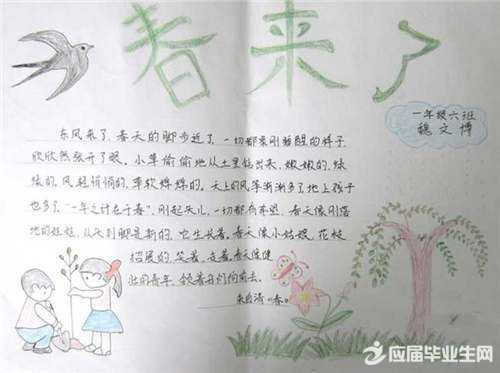 春来了
一年级六班
魏文博
东风来了,春天的脚步近了,一切都象刚睡醒的样子,
欣欣然张开了眼。小草偷偷地从土里钻出来,嫩嫩的,绿
绿的。风轻悄悄的,草软绵绵的。天上的风筝渐渐多了,地上孩子
也多了,"一年之计在于春",刚起头儿,一切都有希望。春天像刚落
地的娃娃,从头到脚是新的,它生长着。春天像小姑娘,花枝
招展的,笑着,走着。春天像健
壮的青年,领着我们向前去。
朱自清《春》
应届毕业生网